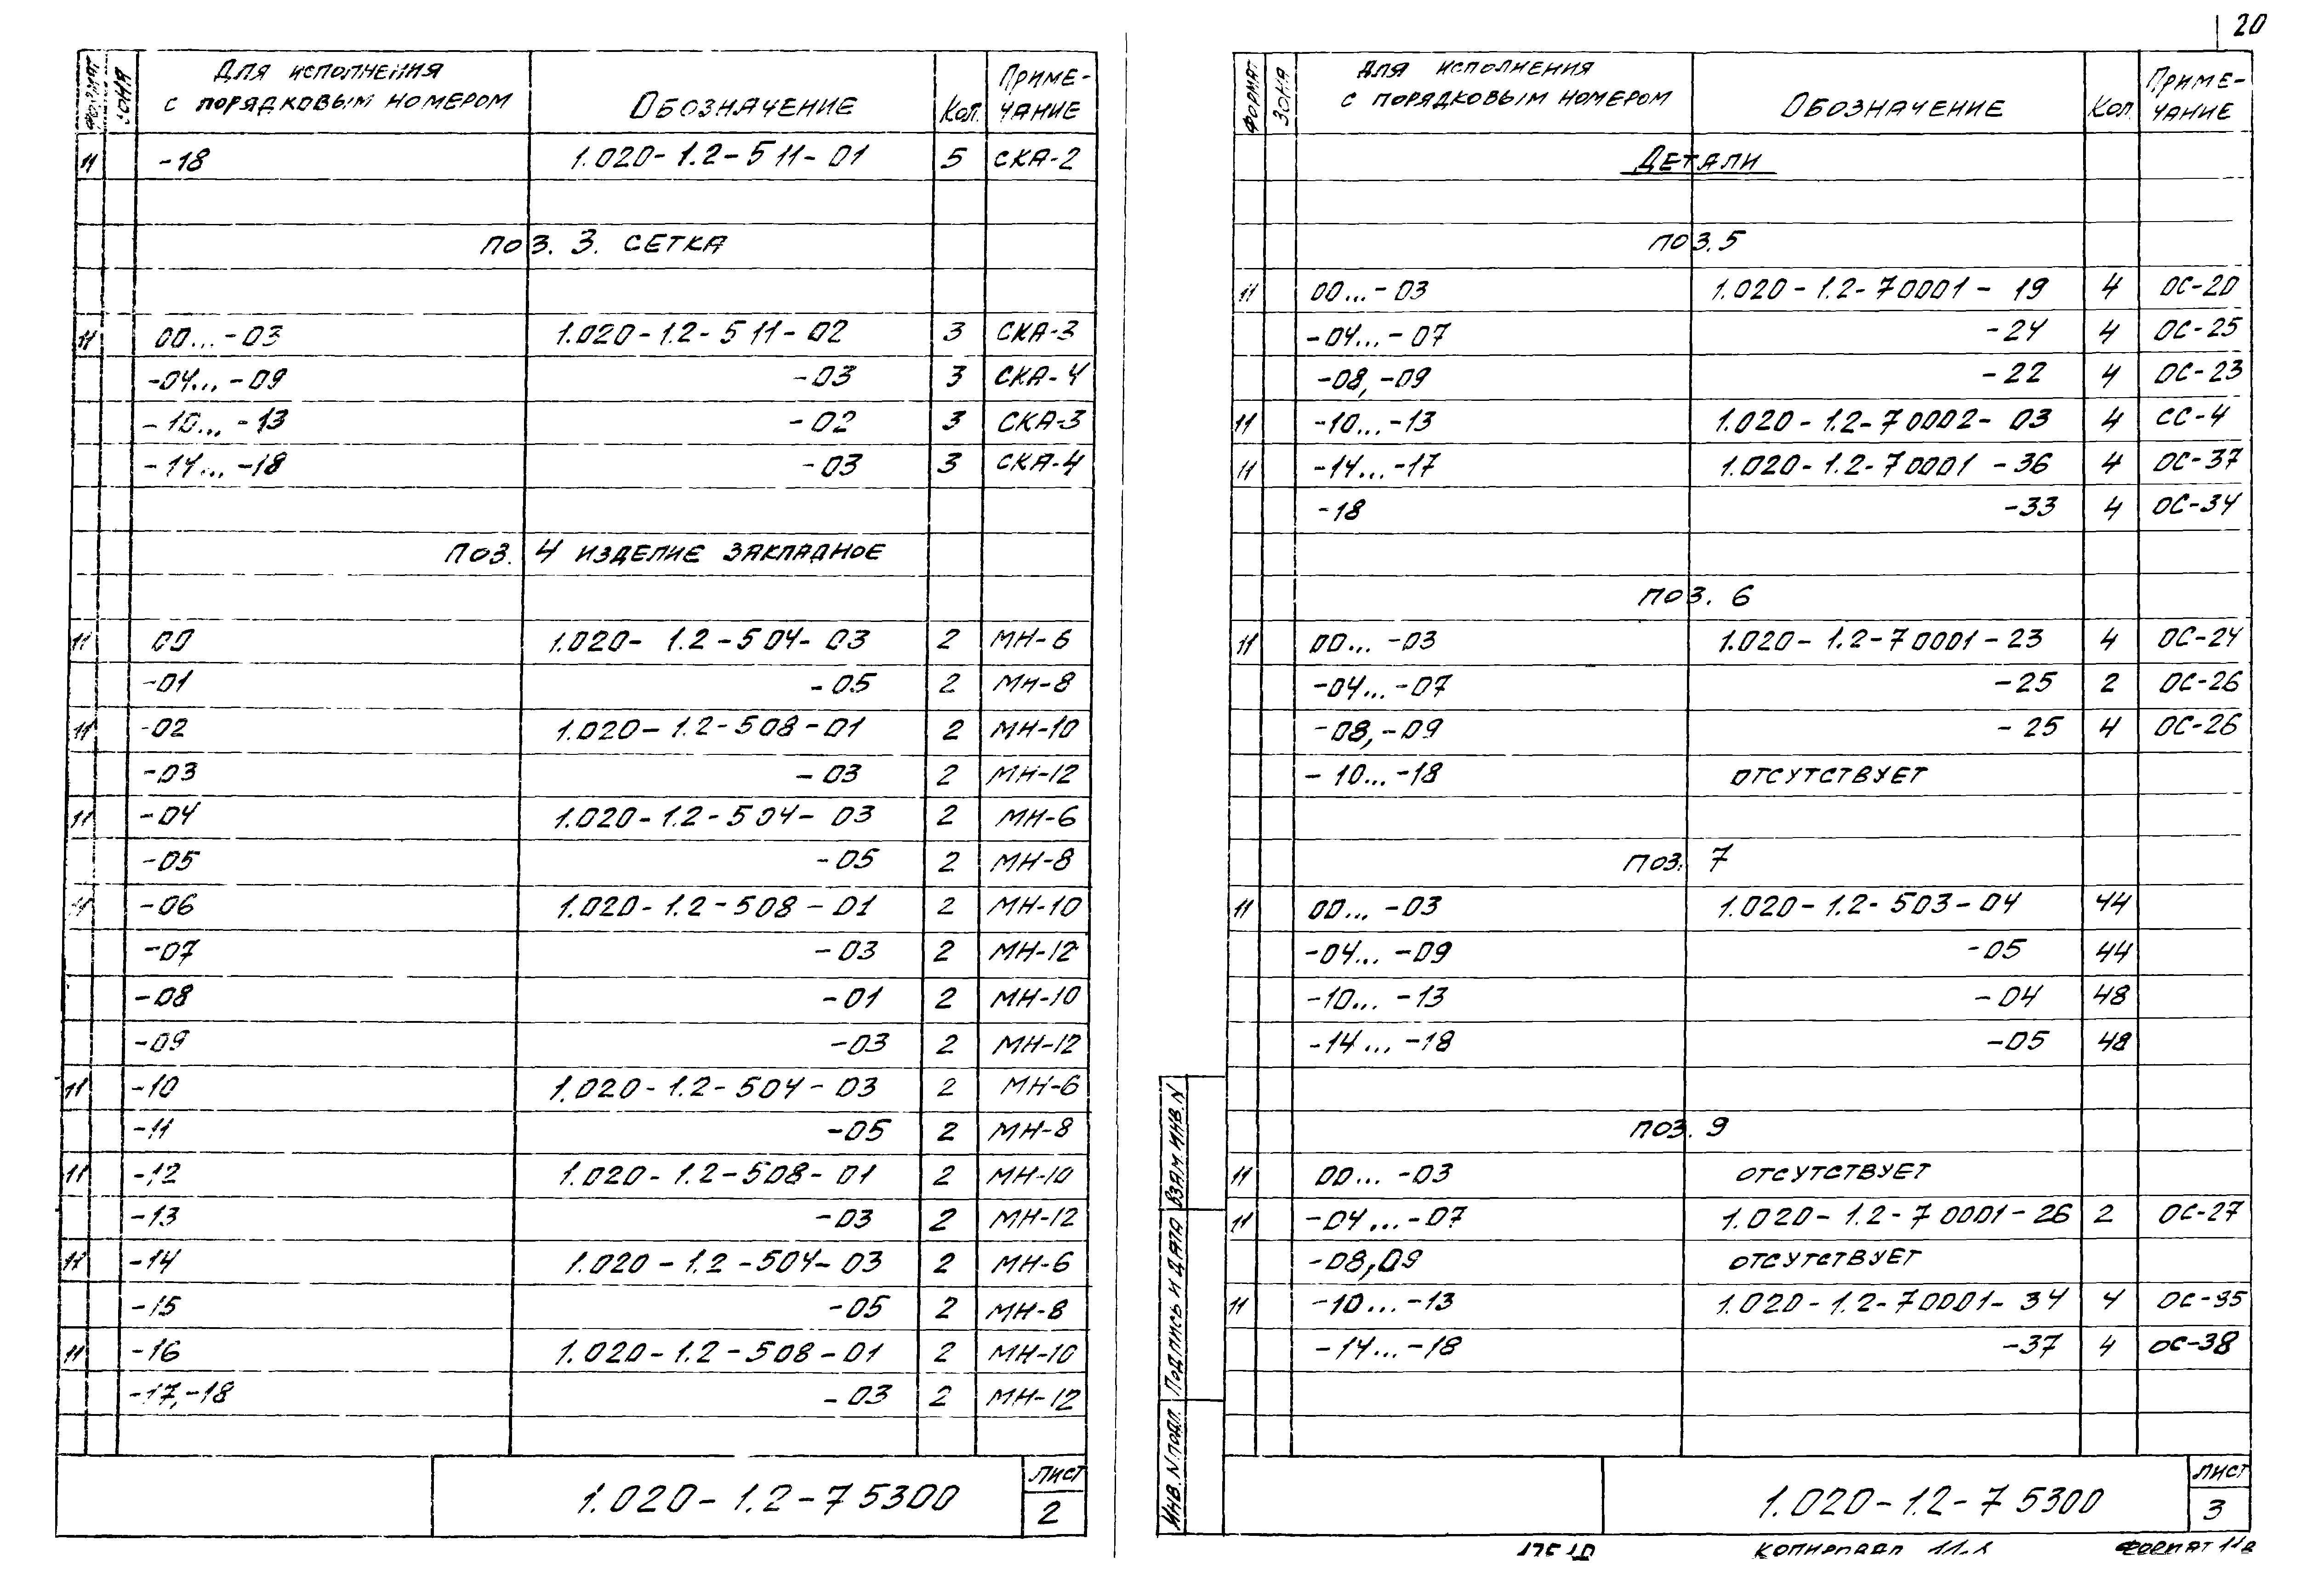 20
ФОРМАТ ЗОНА Для исполнения с порядковым номером Обозначение Кол. Примечание
11 -18 1.020-1.2-511-01 5 СКА-2
поз. 3. СЕТКА
11 00...-03 1.020-1.2-511-02 3 СКА-3
-04...-09 -03 3 СКА-4
-10...-13 -02 3 СКА-3
-14...-18 -03 3 СКА-4
поз. 4 изделие закладное
11 00 1.020-1.2-504-03 2 МН-6
-01 -05 2 МН-8
11 -02 1.020-1.2-508-01 2 МН-10
-03 -03 2 МН-12
11 -04 1.020-1.2-504-03 2 МН-6
-05 -05 2 МН-8
11 -06 1.020-1.2-508-01 2 МН-10
-07 -03 2 МН-12
-08 -01 2 МН-10
-09 -03 2 МН-12
11 -10 1.020-1.2-504-03 2 МН-6
-11 -05 2 МН-8
11 -12 1.020-1.2-508-01 2 МН-10
-13 -03 2 МН-12
11 -14 1.020-1.2-504-03 2 МН-6
-15 -05 2 МН-8
11 -16 1.020-1.2-508-01 2 МН-10
-17,-18 -03 2 МН-12
1.020-1.2-7 5300 Лист 2
ФОРМАТ ЗОНА Для исполнения с порядковым номером Обозначение Кол. Примечание
Детали
поз. 5
11 00...-03 1.020-1.2-7 0001-19 4 ОС-20
-04...-07 -24 4 ОС-25
-08,-09 -22 4 ОС-23
11 -10...-13 1.020-1.2-7 0002-03 4 СС-4
11 -14...-17 1.020-1.2-7 0001-36 4 ОС-37
-18 -33 4 ОС-34
поз. 6
11 00...-03 1.020-1.2-7 0001-23 4 ОС-24
-04...-07 -25 2 ОС-26
-08,-09 -25 4 ОС-26
-10...-18 отсутствует
поз. 7
11 00...-03 1.020-1.2-503-04 44
-04...-09 -05 44
-10...-13 -04 48
-14...-18 -05 48
поз. 9
11 00...-03 отсутствует
11 -04...-07 1.020-1.2-7 0001-26 2 ОС-27
-08,09 отсутствует
11 -10...-13 1.020-1.2-7 0001-34 4 ОС-35
-14...-18 -37 4 ОС-38
Инв. N подл. Подпись и дата Взам. инв. N
1.020-1.2-7 5300 Лист 3
Копировал Формат 11